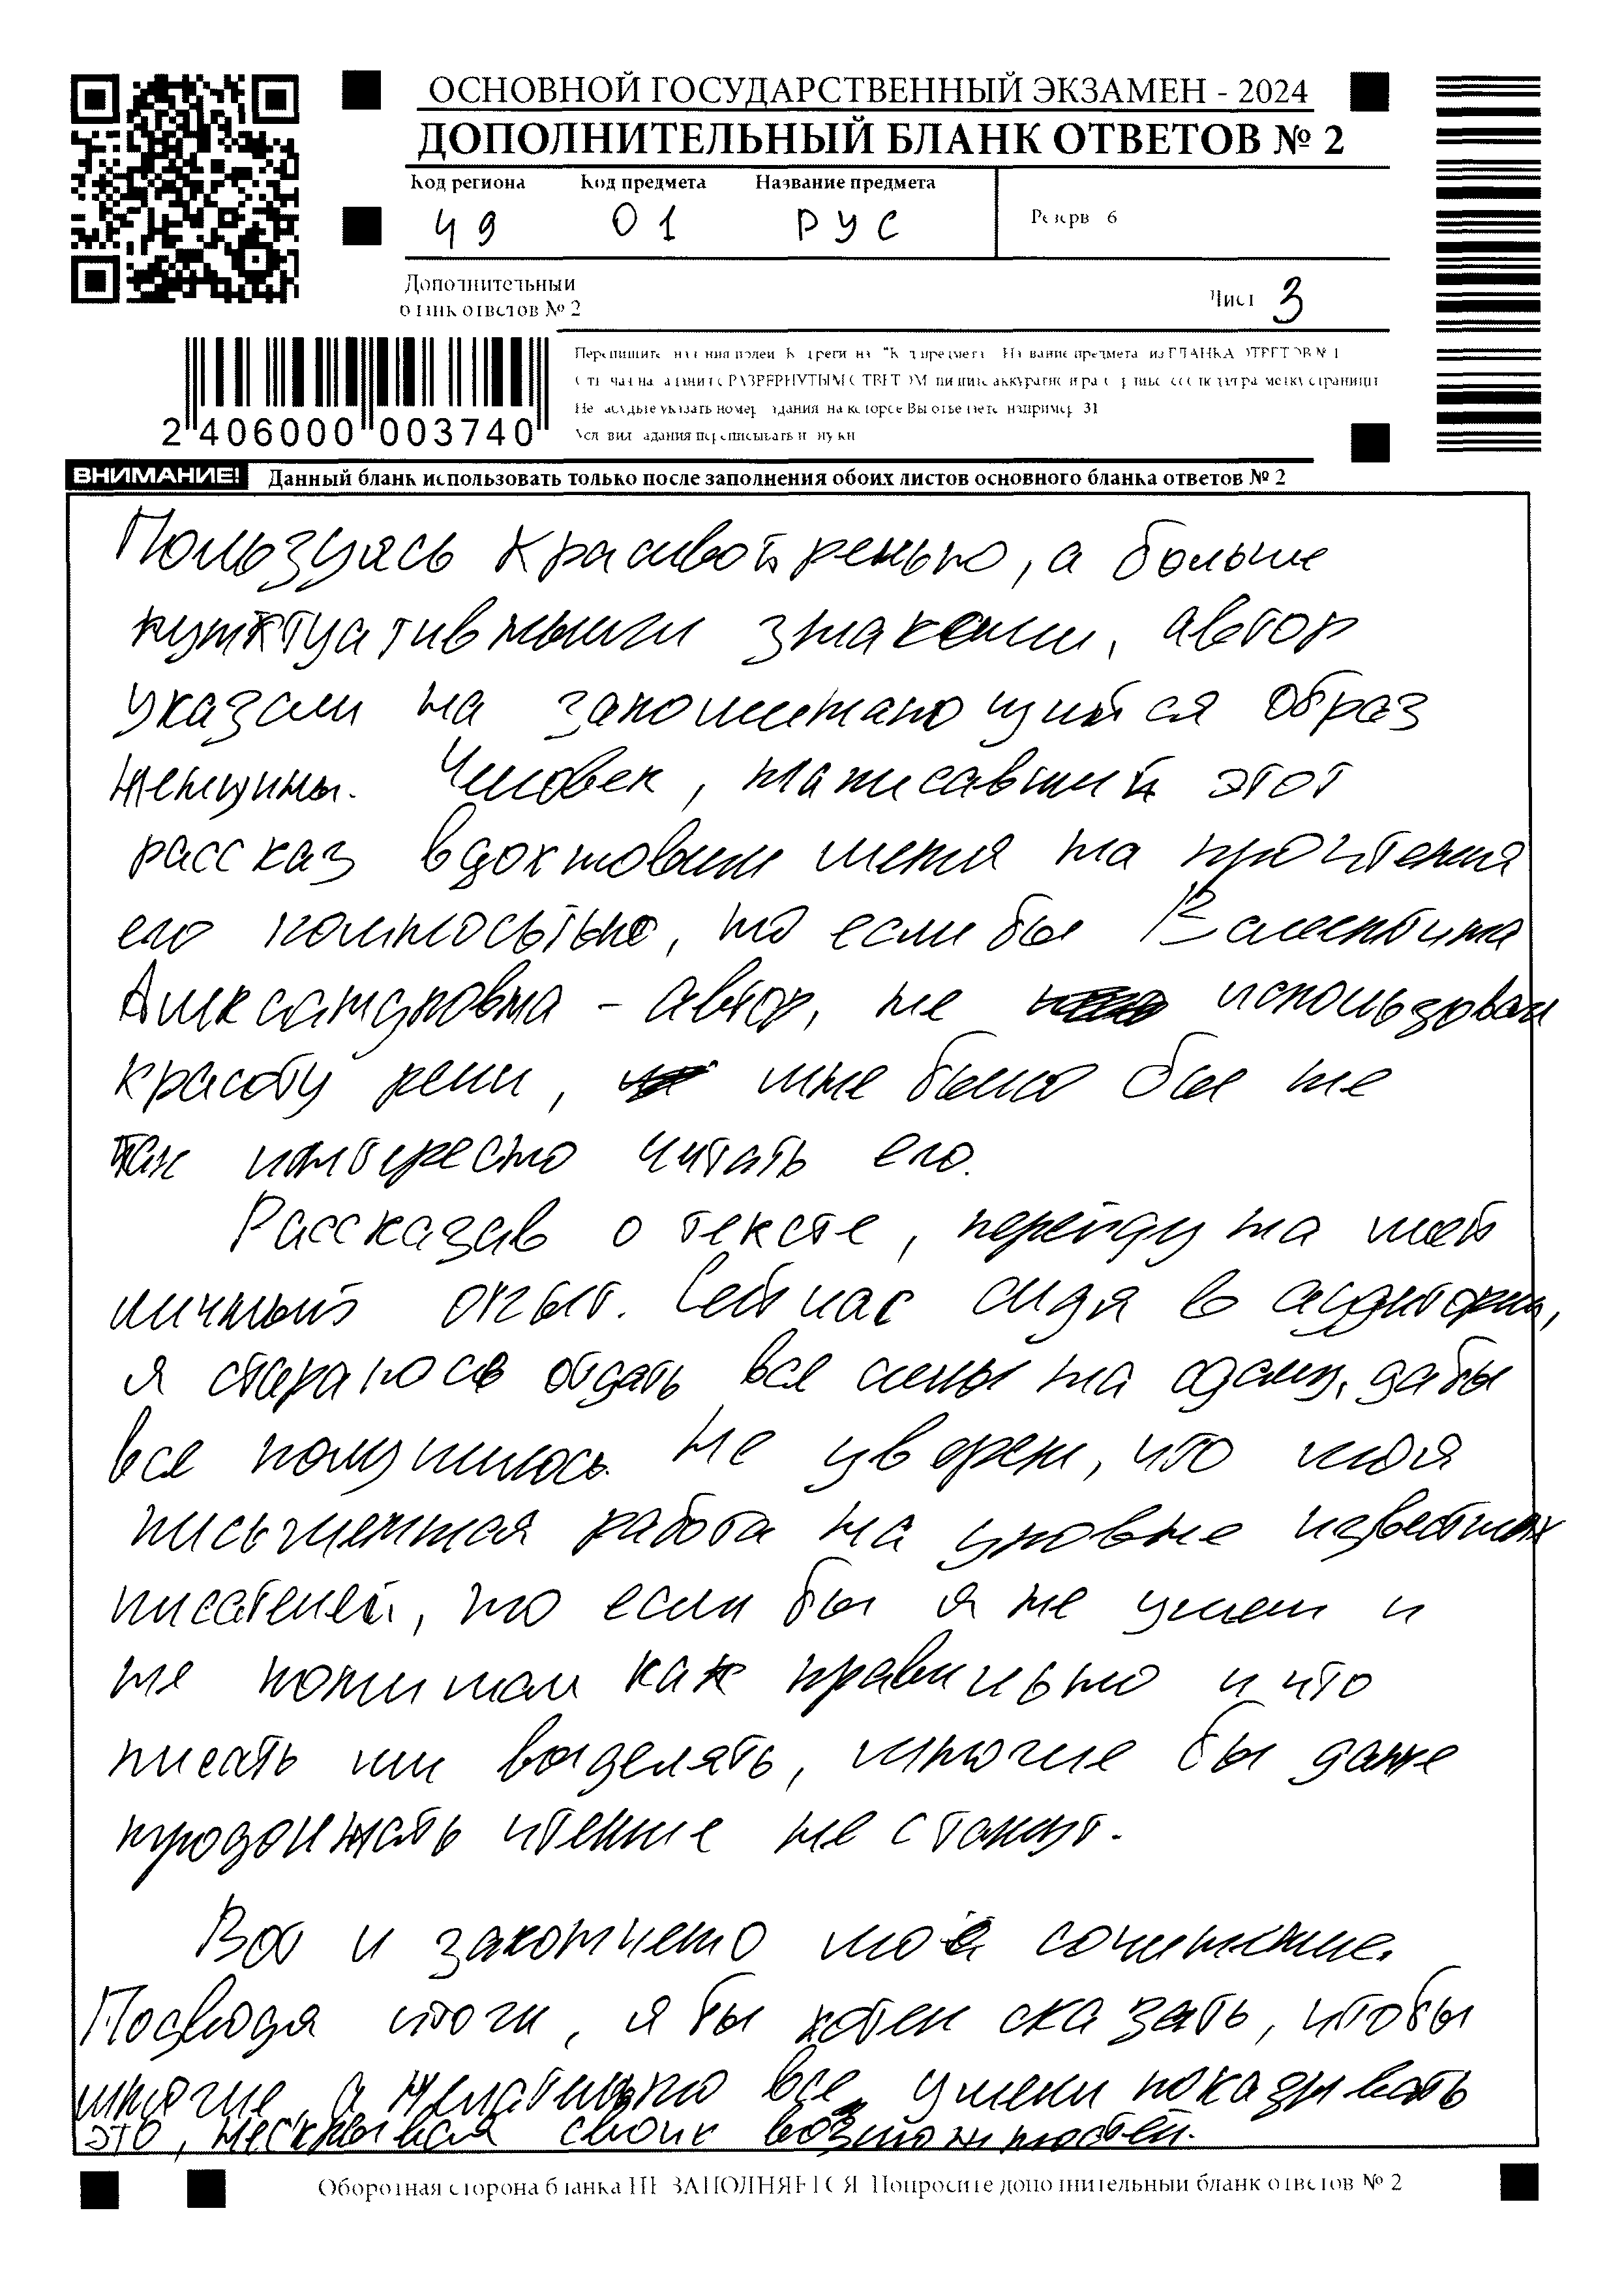 ОСНОВНОЙ ГОСУДАРСТВЕННЫЙ ЭКЗАМЕН - 2024
ДОПОЛНИТЕЛЬНЫЙ БЛАНК ОТВЕТОВ № 2
Код региона Код предмета Название предмета
49 01 РУС
Резерв 6
Дополнительный
бланк ответов № 2
Лист 3
2 406000 003740
ВНИМАНИЕ! Данный бланк использовать только после заполнения обоих листов основного бланка ответов № 2
Пользуясь красивой речью, а больше
пунктуативными знаками, автор
указал на запоминающийся образ
женщины. Человек, написавший этот
рассказ вдохновил меня на прочтения
его полностью, но если бы Валентина
Александровна - автор, не использовал
красоту речи, мне было бы не
так интересно читать его.
Рассказав о тексте, перейду на мой
личный опыт. Сейчас сидя в аудитории,
я стараюсь отдать все силы на сдачу, дабы
все получилось. Не уверен, что моя
письменная работа на уровне известных
писателей, но если бы я не умел и
не понимал как правильно и что
писать или выделять, многие бы даже
продолжать чтение не станут.
Вот и закончено моё сочинение.
Подводя итоги, я бы хотел сказать, чтобы
многие, а желательно все, умели показывать
это, нескрывая своих возможностей.
Оборотная сторона бланка НЕ ЗАПОЛНЯЕТСЯ. Попросите дополнительный бланк ответов № 2